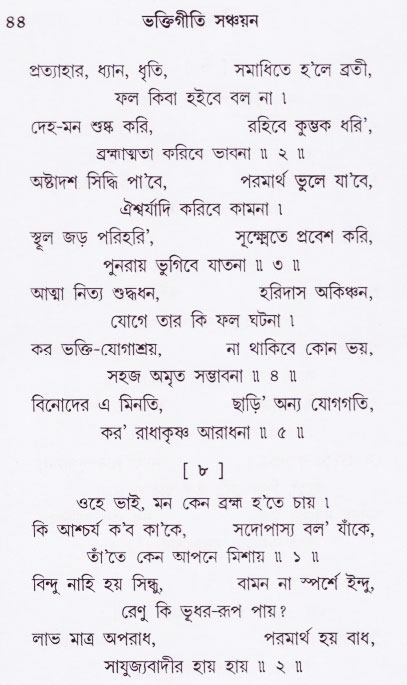 ৪৪ ভক্তিগীতি সঞ্চয়ন
প্রত্যাহার, ধ্যান, ধৃতি, সমাধিতে হ'লে ব্রতী,
ফল কিবা হইবে বল না ।
দেহ-মন শুষ্ক করি, রহিবে কুম্ভক ধরি',
ব্রহ্মাত্মতা করিবে ভাবনা ॥ ২ ॥
অষ্টাদশ সিদ্ধি পা'বে, পরমার্থ ভুলে যা'বে,
ঐশ্বর্যাদি করিবে কামনা ।
স্থূল জড় পরিহরি', সূক্ষ্মেতে প্রবেশ করি,
পুনরায় ভুগিবে যাতনা ॥ ৩ ॥
আত্মা নিত্য শুদ্ধধন, হরিদাস অকিঞ্চন,
যোগে তার কি ফল ঘটনা ।
কর ভক্তি-যোগাশ্রয়, না থাকিবে কোন ভয়,
সহজ অমৃত সম্ভাবনা ॥ ৪ ॥
বিনোদের এ মিনতি, ছাড়ি' অন্য যোগগতি,
কর' রাধাকৃষ্ণ আরাধনা ॥ ৫ ॥
[ ৮ ]
ওহে ভাই, মন কেন ব্রহ্ম হ'তে চায় ।
কি আশ্চর্য ক'ব কা'কে, সদোপাস্য বল' যাঁকে,
তাঁ'তে কেন আপনে মিশায় ॥ ১ ॥
বিন্দু নাহি হয় সিন্ধু, বামন না স্পর্শে ইন্দু,
রেণু কি ভূধর-রূপ পায়?
লাভ মাত্র অপরাধ, পরমার্থ হয় বাধ,
সাযুজ্যবাদীর হায় হায় ॥ ২ ॥